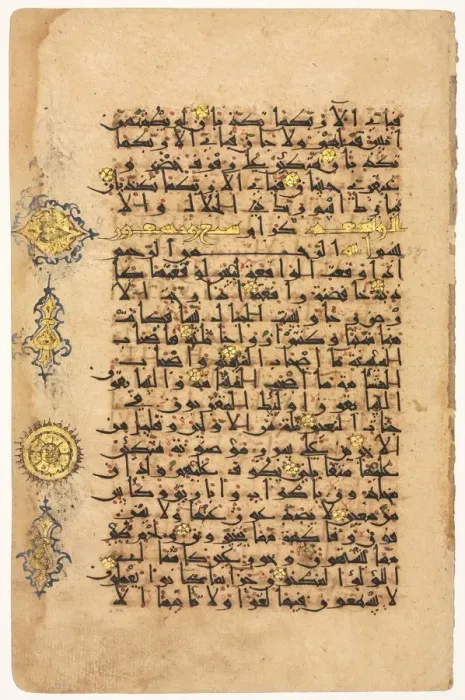 فبأي آلاء ربكما تكذبان لم يطمثهن
إنس قبلهم ولا جان فبأي آلاء ربكما
تكذبان متكئين على رفرف خضر و
عبقري حسان فبأي آلاء ربكما تكذبان
تبارك اسم ربك ذي الجلال والإ
الواقعة كرام تسع وتسعون
بسم الله الرحمن الرحيم
إذا وقعت الواقعة ليس لوقعتها كا
ذبة خافضة رافعة إذا رجت الأ
رض رجا وبست الجبال بسا فكانت
هباء منبثا وكنتم أزواجا ثلثة فأصحاب
الميمنة ما أصحاب الميمنة وأصحاب
المشأمة ما أصحاب المشأمة والسابقون
السابقون أولئك المقربون في
جنات النعيم ثلة من الأولين وقليل من
الآخرين على سرر موضونة متكئين
عليها متقابلين يطوف عليهم ولدان
مخلدون بأكواب وأباريق وكأس
من معين لا يصدعون عنها ولا ينز
فون وفاكهة مما يتخيرون ولحم طير
مما يشتهون وحور عين كأمثال
اللؤلؤ المكنون جزاء بما كانوا يعملون
لا يسمعون فيها لغوا ولا تأثيما إلا